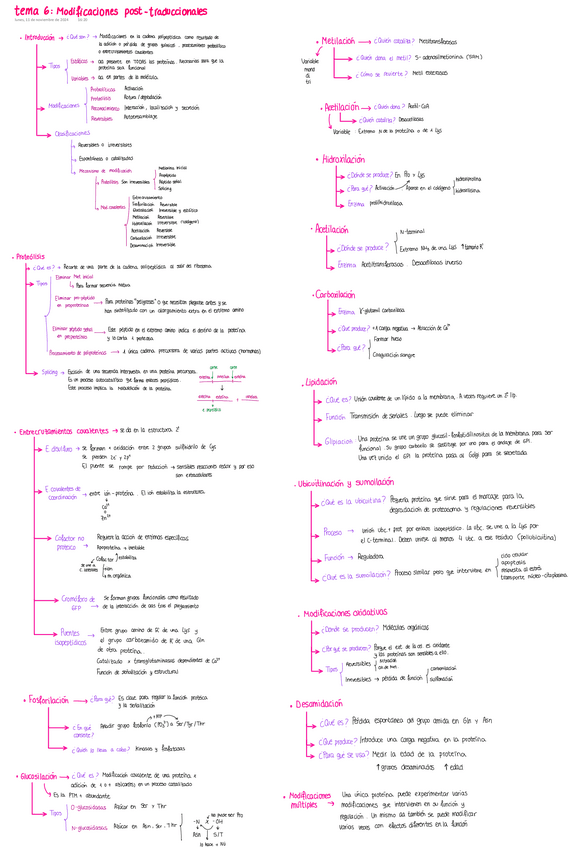 tema 6: Modificaciones post-traduccionales
· Introducción → ¿Qué son? → Modificaciones en la cadena polipeptídica como resultado de
la adición o pérdida de grupos químicos, procesamiento proteolítico
o entrecruzamientos covalentes
Tipos
Estáticas → aa presente en TODAS las proteínas. Necesarias para que la
proteína sea funcional
Variables → aa en partes de la molécula.
Modificaciones
Proteolíticas Activación
Proteólisis Rotura / degradación
Reconocimiento Interacción, localización y secreción
Reversibles
Clasificaciones
Reversibles o irreversibles
Espontáneas o catalizadas
Mecanismo de modificación
Proteólisis Son irreversibles
Metionina inicial
Propéptido
Péptido señal
Splicing
Mod. covalentes
Entrecruzamiento
Fosforilación Reversible
Glucosilación Irreversible y estático
Metilación Reversible
Hidroxilación Irreversible (colágeno)
Acetilación Reversible
Carboxilación Irreversible
Desamidación Irreversible
· Proteólisis
¿Qué es? → Recorte de una parte de la cadena polipeptídica al salir del ribosoma.
Tipos
Eliminar Met inicial
Para formar secuencia madura
Eliminar pro-péptido
en proproteínas
→ Para proteínas "peligrosas" o que necesitan plegarse antes y se
han sintetizado con un alargamiento extra en el extremo amino
Eliminar péptido señal
en preproteínas
→ Este péptido en el extremo amino indica el destino de la proteína
y la corta 1 proteasa
Procesamiento de poliproteínas → 1 única cadena precursora de varias partes activas (hormonas)
Splicing → Escisión de una secuencia interpuesta en una proteína precursora.
Es un proceso autocatalítico que forma enlaces peptídicos.
Este proceso implica la maduración de la proteína.
· Entrecruzamientos covalentes → se da en la estructura 2ª
E. disulfuro → se forman x oxidación entre 2 grupos sulfhidrilo de Cys
Se pierden 2e⁻ y 2p⁺
El puente se rompe por reducción → sensibles reacciones redox y por eso
son extracelulares
E. covalentes de
coordinación → entre ión - proteína. El ión estabiliza la estructura.
Ca²⁺
Zn²⁺
Cofactor no
proteico
Requiere la acción de enzimas específicas.
Apoproteína → inestable
Cofactor estabiliza
ión
m. orgánica
Cromóforo de
GFP
Se forman grupos funcionales como resultado
de la interacción de aas tras el plegamiento
Puentes
isopeptídicos
Entre grupo amino de R de una Lys y
el grupo carboxamida de R de una Gln
de otra proteína.
Catalizado x transglutaminasas dependientes de Ca²⁺
Función de señalización y estructural
· Fosforilación → ¿Para qué? Es clave para regular la función proteica
y la señalización
¿En qué
consiste?
Añadir grupo fosforilo (PO₃²⁻) a Ser/Tyr/Thr
¿Quién lo lleva a cabo? Kinasas y fosfatasas
· Glucosilación → ¿Qué es? Modificación covalente de una proteína x
adición de 1 o + azúcares en un proceso catalizado
Es la PTM + abundante
Tipos
O-glucosidadas Azúcar en Ser y Thr
N-glucosidadas Azúcar en Asn. Ser. Thr
no puede ser Pro
-N X -OH
Asn S/T
· Metilación → ¿Quién cataliza? Metiltransferasas
Variable
¿Quién dona el metil? S-adenosilmetionina (SAM)
mono
di
tri
¿Cómo se revierte? Metil esterasas
· Acetilación → ¿Quién dona? Acetil-CoA
¿Quién cataliza? Desacetilasas
Variable Extremo N de la proteína o de 1 Lys
· Hidroxilación
¿Dónde se produce? En Pro y Lys
¿Para qué? Activación
Aparece en el colágeno
hidroxiprolina
hidroxilisina
Enzima prolilhidroxilasa
· Acetilación
¿Dónde se produce?
N-terminal
Extremo NH₂ de una Lys
Enzima Acetiltransferasas Desacetilasas inverso
· Carboxilación
Enzima γ-glutamil carboxilasa
¿Qué produce? +1 carga negativa → Atracción de Ca²⁺
¿Para qué?
Formar hueso
Coagulación sangre
· Lipidación
¿Qué es? Unión covalente de un lípido a la membrana. A veces requiere un 2º lip.
Función Transmisión de señales. Luego se puede eliminar
Glipiación Una proteína se une un grupo glucosil-fosfatidilinositol de la membrana para ser
funcional. Su grupo carboxilo se sustituye por uno para el anclaje de GPI.
Una vez unido el GPI la proteína pasa al Golgi para se secretada.
· Ubicuitinación y sumoilación
¿Qué es la ubicuitina? Pequeña proteína que sirve para el marcaje para la
degradación de proteasoma y regulaciones reversibles
Proceso → Unión Ubc + prot. por enlace isopeptídico. La Ubc. se une a la Lys por
el C-terminal. Deben unirse al menos 4 Ubc. a ese residuo (poliubicuitina)
Función → Reguladora
¿Qué es la sumoilación? Proceso similar pero que interviene en
ciclo celular
apoptosis
respuesta al estrés
transporte núcleo-citoplasma
· Modificaciones oxidativas
¿Donde se producen? Moléculas orgánicas
¿Por qué se producen? Porque el ext. de la cél. es oxidante
y las proteínas son sensibles a ello.
Tipos
Reversibles
Irreversibles → pérdida de función
carbonilación
sulfonación
· Desamidación
¿Qué es? Pérdida espontánea del grupo amida en Gln y Asn
¿Qué produce? Introduce una carga negativa en la proteína.
¿Para qué se usa? Medir la edad de la proteína.
↑ grupos desamidados ↑ edad
· Modificaciones
múltiples →
Una única proteína, puede experimentar varias
modificaciones que intervienen en su función y
regulación. Un mismo aa también se puede modificar
varias veces con efectos diferentes en la función